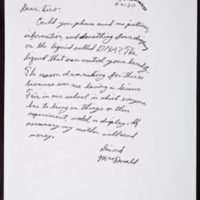 Dear Sirs:
Could you please send me pictures,
information, and something
on the liquid called DNA? The
liquid that can control your heredity.
The reason I am asking for these is
because we are having a Science
Fair in our school in which everyone
has to bring in things or do an
experiment, model or display. If
necessary my mother will send
money.
David
MacDonald